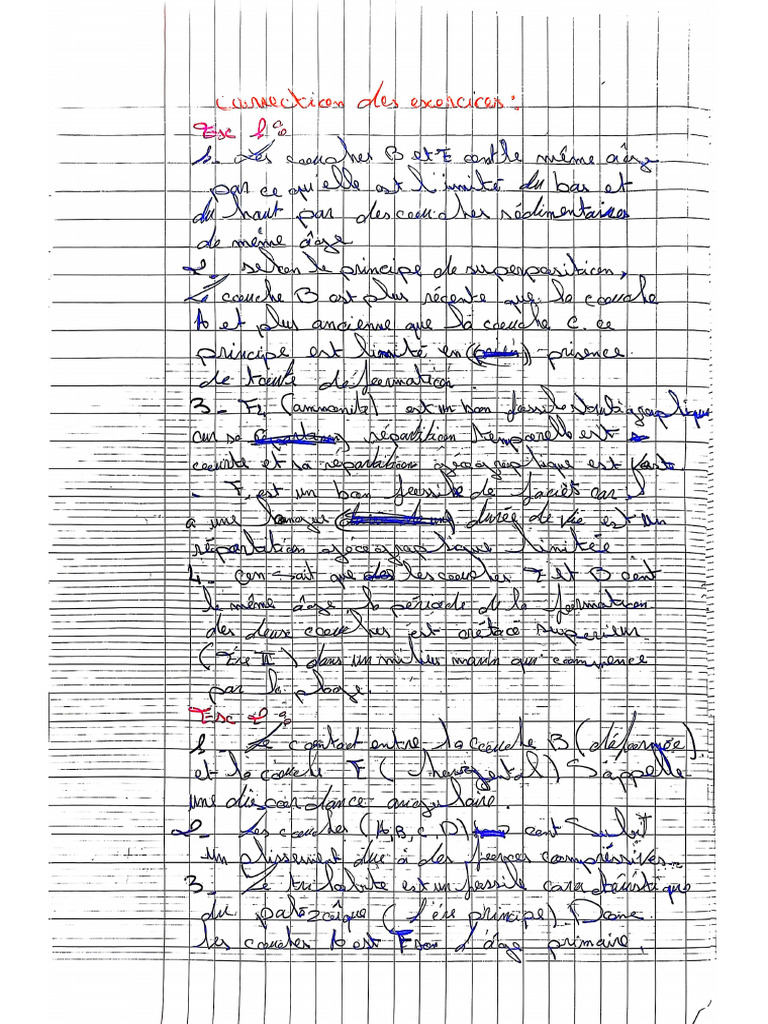 Correction des exercices :
Exc 1 :
1- Les couches B et E ont le même âge
par ce qu'elle est limité du bas et
du haut par des couches sédimentaires
de même âge
2- selon le principe de superposition,
La couche B est plus récente que la couche
A et plus ancienne que la couche C. ce
principe est limité en présence
de toute déformation.
3- F2 (ammonite) est un bon fossile stratigraphique
car sa répartition temporelle est
courte et sa repartition géographique est vaste
- F1 est un bon fossile de faciès car il
a une longue durée de vie est un
répartition géographique limitée
4- on sait que les couches E et B ont
le même âge, la période de la formation
des deux couches est crétacé supérieur
(Ere II) dans un milieu marin qui commence
par la plage.
Exc 2 :
1- Le contact entre la couche B (déformée)
et la couche F (horizontal) s'appelle
une discordance angulaire.
2- Les couches (A, B, C, D) ont subit
un plissement due à des forces compressives.
3- Le trilobite est un fossile caractéristique
du paléozoïque (l'ére principe) Donc
les couches A est F son d'âge primaire.